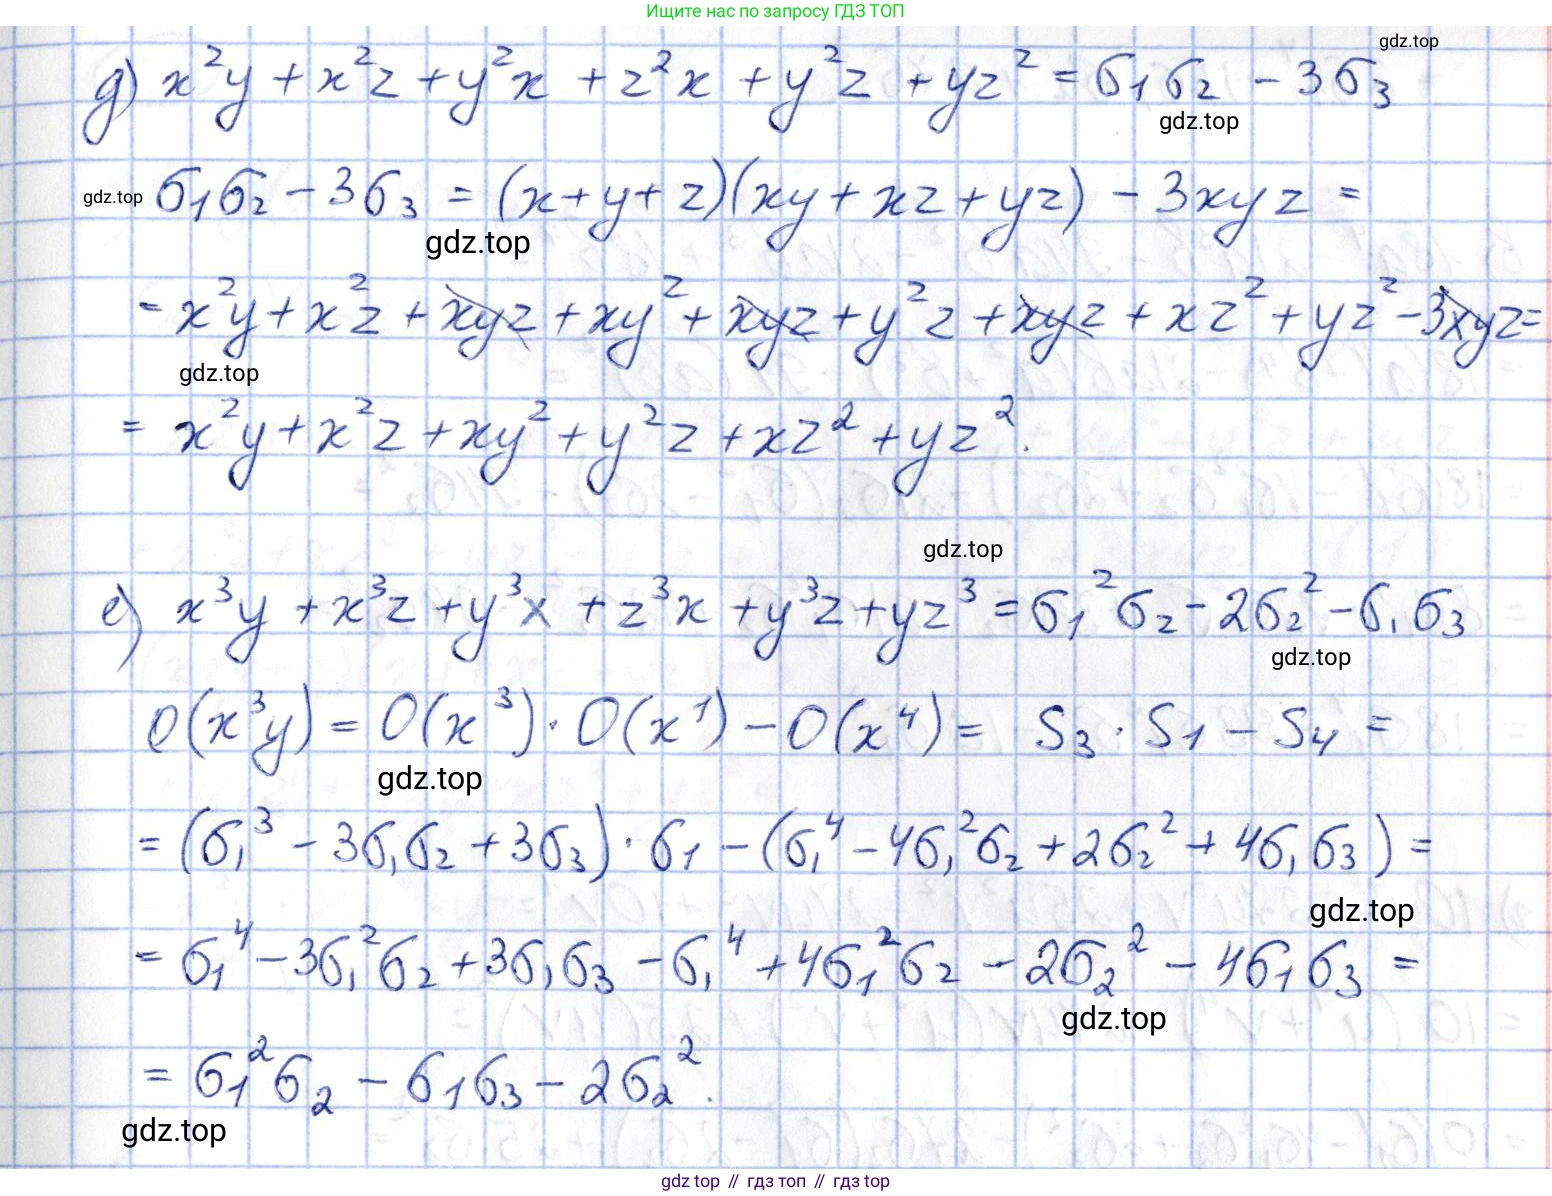 Ищите нас по запросу ГДЗ ТОП
gdz.top
д) x²y + x²z + y²x + z²x + y²z + yz² = б₁б₂ - 3б₃
gdz.top
gdz.top
б₁б₂ - 3б₃ = (x+y+z)(xy+xz+yz) - 3xyz =
gdz.top
= x²y + x²z + xyz + xy² + xyz + y²z + xyz + xz² + yz² - 3xyz =
gdz.top
= x²y + x²z + xy² + y²z + xz² + yz².
gdz.top
е) x³y + x³z + y³x + z³x + y³z + yz³ = б₁²б₂ - 2б₂² - б₁б₃
gdz.top
O(x³y) = O(x³)·O(x¹) - O(x⁴) = S₃·S₁ - S₄ =
gdz.top
= (б₁³ - 3б₁б₂ + 3б₃)·б₁ - (б₁⁴ - 4б₁²б₂ + 2б₂² + 4б₁б₃) =
gdz.top
= б₁⁴ - 3б₁²б₂ + 3б₁б₃ - б₁⁴ + 4б₁²б₂ - 2б₂² - 4б₁б₃ =
gdz.top
= б₁²б₂ - б₁б₃ - 2б₂².
gdz.top
gdz top // гдз топ // gdz top